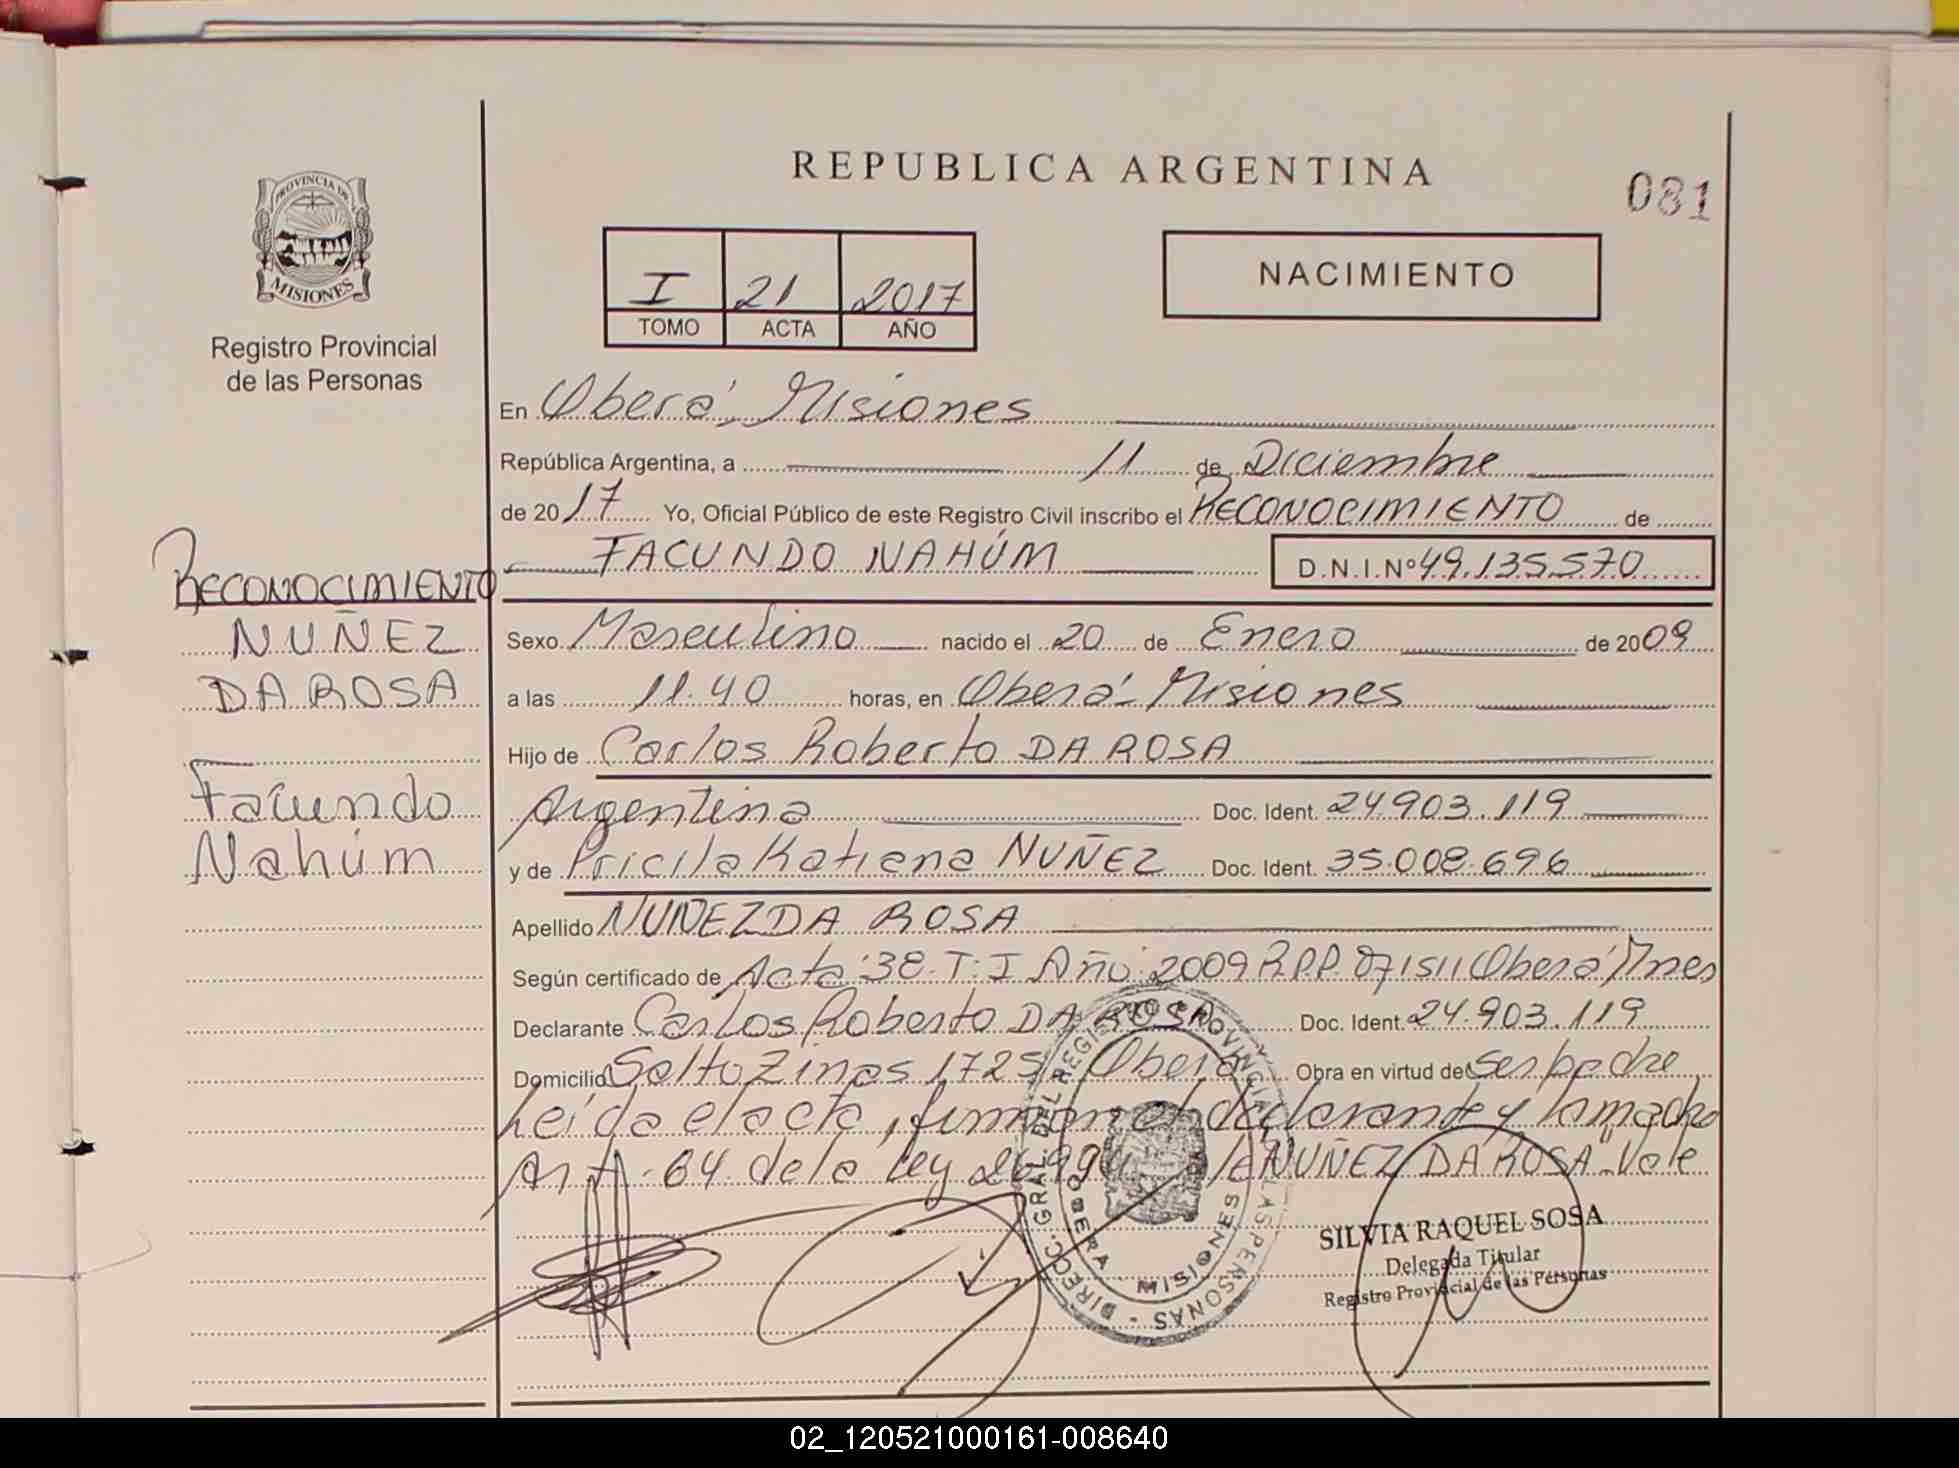 REPUBLICA ARGENTINA
081
PROVINCIA DE
MISIONES
Registro Provincial
de las Personas
I 21 2017
TOMO ACTA AÑO
NACIMIENTO
En Oberá, Misiones
República Argentina, a 11 de Diciembre
de 2017 Yo, Oficial Público de este Registro Civil inscribo el RECONOCIMIENTO de
FACUNDO NAHÚM D.N.I.Nº 49.135.570
RECONOCIMIENTO
NUÑEZ
DA ROSA
Facundo
Nahúm
Sexo Masculino nacido el 20 de Enero de 2009
a las 11.40 horas, en Oberá- Misiones
Hijo de Carlos Roberto DA ROSA
Argentina Doc. Ident. 24.903.119
y de Pricila Katiana NUÑEZ Doc. Ident. 35.008.696
Apellido NUÑEZ DA ROSA
Según certificado de Acta:38.T:I Año:2009 R.P.P. 071511 Oberá Mnes
Declarante Carlos Roberto DA ROSA Doc. Ident. 24.903.119
Domicilio Salto Zinas 1725 Oberá Obra en virtud de ser padre
Leída el acta, firman el declarante y la madre
Art. 64 de la ley 26994 NUÑEZ DA ROSA" Vale
DIRECC. GRAL. DEL REGISTRO PROVINCIAL DE LAS PERSONAS -
OBERA MISIONES
SILVIA RAQUEL SOSA
Delegada Titular
Registro Provincial de las Personas
02_120521000161-008640